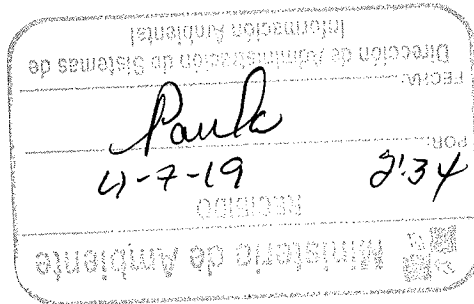 Ministerio de Ambiente
RECIBIDO
4-7-19 2:34
POR:
Paula
FECHA:
Dirección de Administración de Sistemas de
Información Ambiental